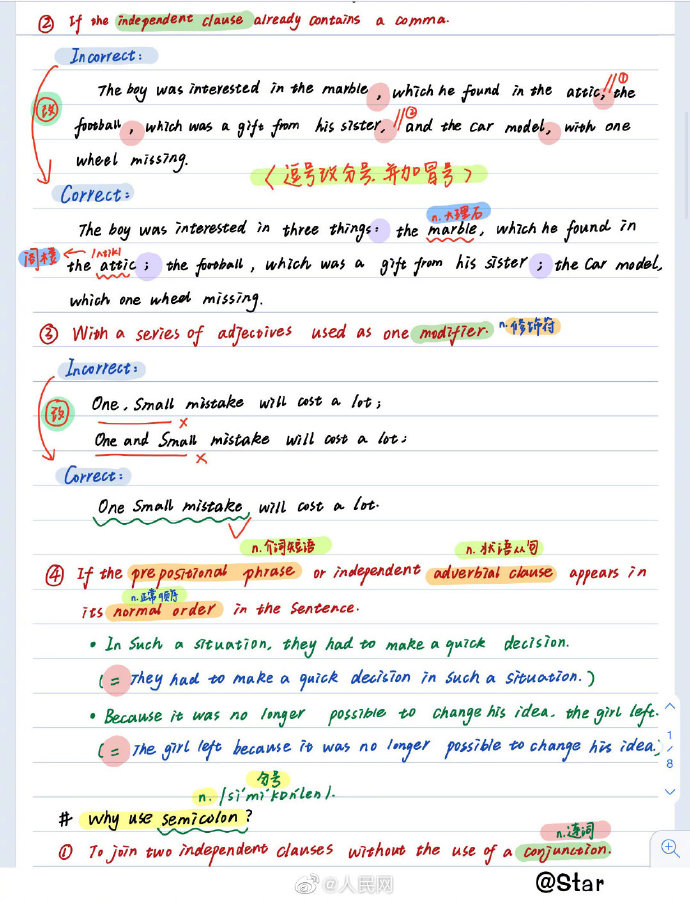 ② If the independent clause already contains a comma.
Incorrect:
改
The boy was interested in the marble, which he found in the attic, the ①
football, which was a gift from his sister, ② and the car model, with one
wheel missing.
〈逗号改分号,并加冒号〉
Correct:
n.大理石
The boy was interested in three things: the marble, which he found in
阁楼
the attic; the football, which was a gift from his sister; the Car model,
which one wheel missing.
③ With a series of adjectives used as one modifier. n.修饰符
Incorrect:
改
One, Small mistake will cost a lot;
×
One and Small mistake will cost a lot;
×
Correct:
One Small mistake, will cost a lot.
n.介词短语 n.状语从句
④ If the prepositional phrase or independent adverbial clause appears in
n.正常顺序
its normal order in the sentence.
• In Such a situation, they had to make a quick decision.
( = They had to make a quick decision in such a situation. )
• Because it was no longer possible to change his idea. the girl left.
( = The girl left because it was no longer possible to change his idea.)
1
/
8
分号
n. /si'mi'kɒnlen/.
# why use semicolon?
n.连词
① To join two independent clauses without the use of a conjunction.
@人民网
@Star